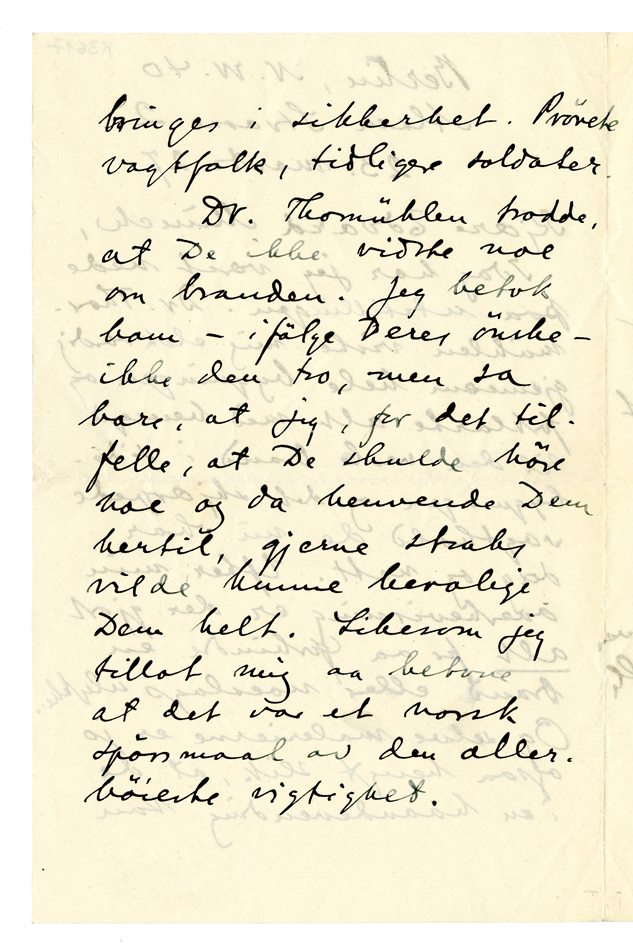 bringes i sikkerhet. Prövete
vagtfolk, tidligere soldater.
Dr. Thomühlen trodde,
at De ikke vidste noe
om branden. Jeg betok
ham – ifölge Deres önske –
ikke den tro, men sa
bare, at jeg, for det til-
felle, at De skulde höre
noe og da henvende Dem
hertil, gjerne straks
vilde kunne berolige
Dem helt. Likesom jeg
tillot mig aa betone
at det var et norsk
spörsmaal av den aller-
höieste vigtighet.